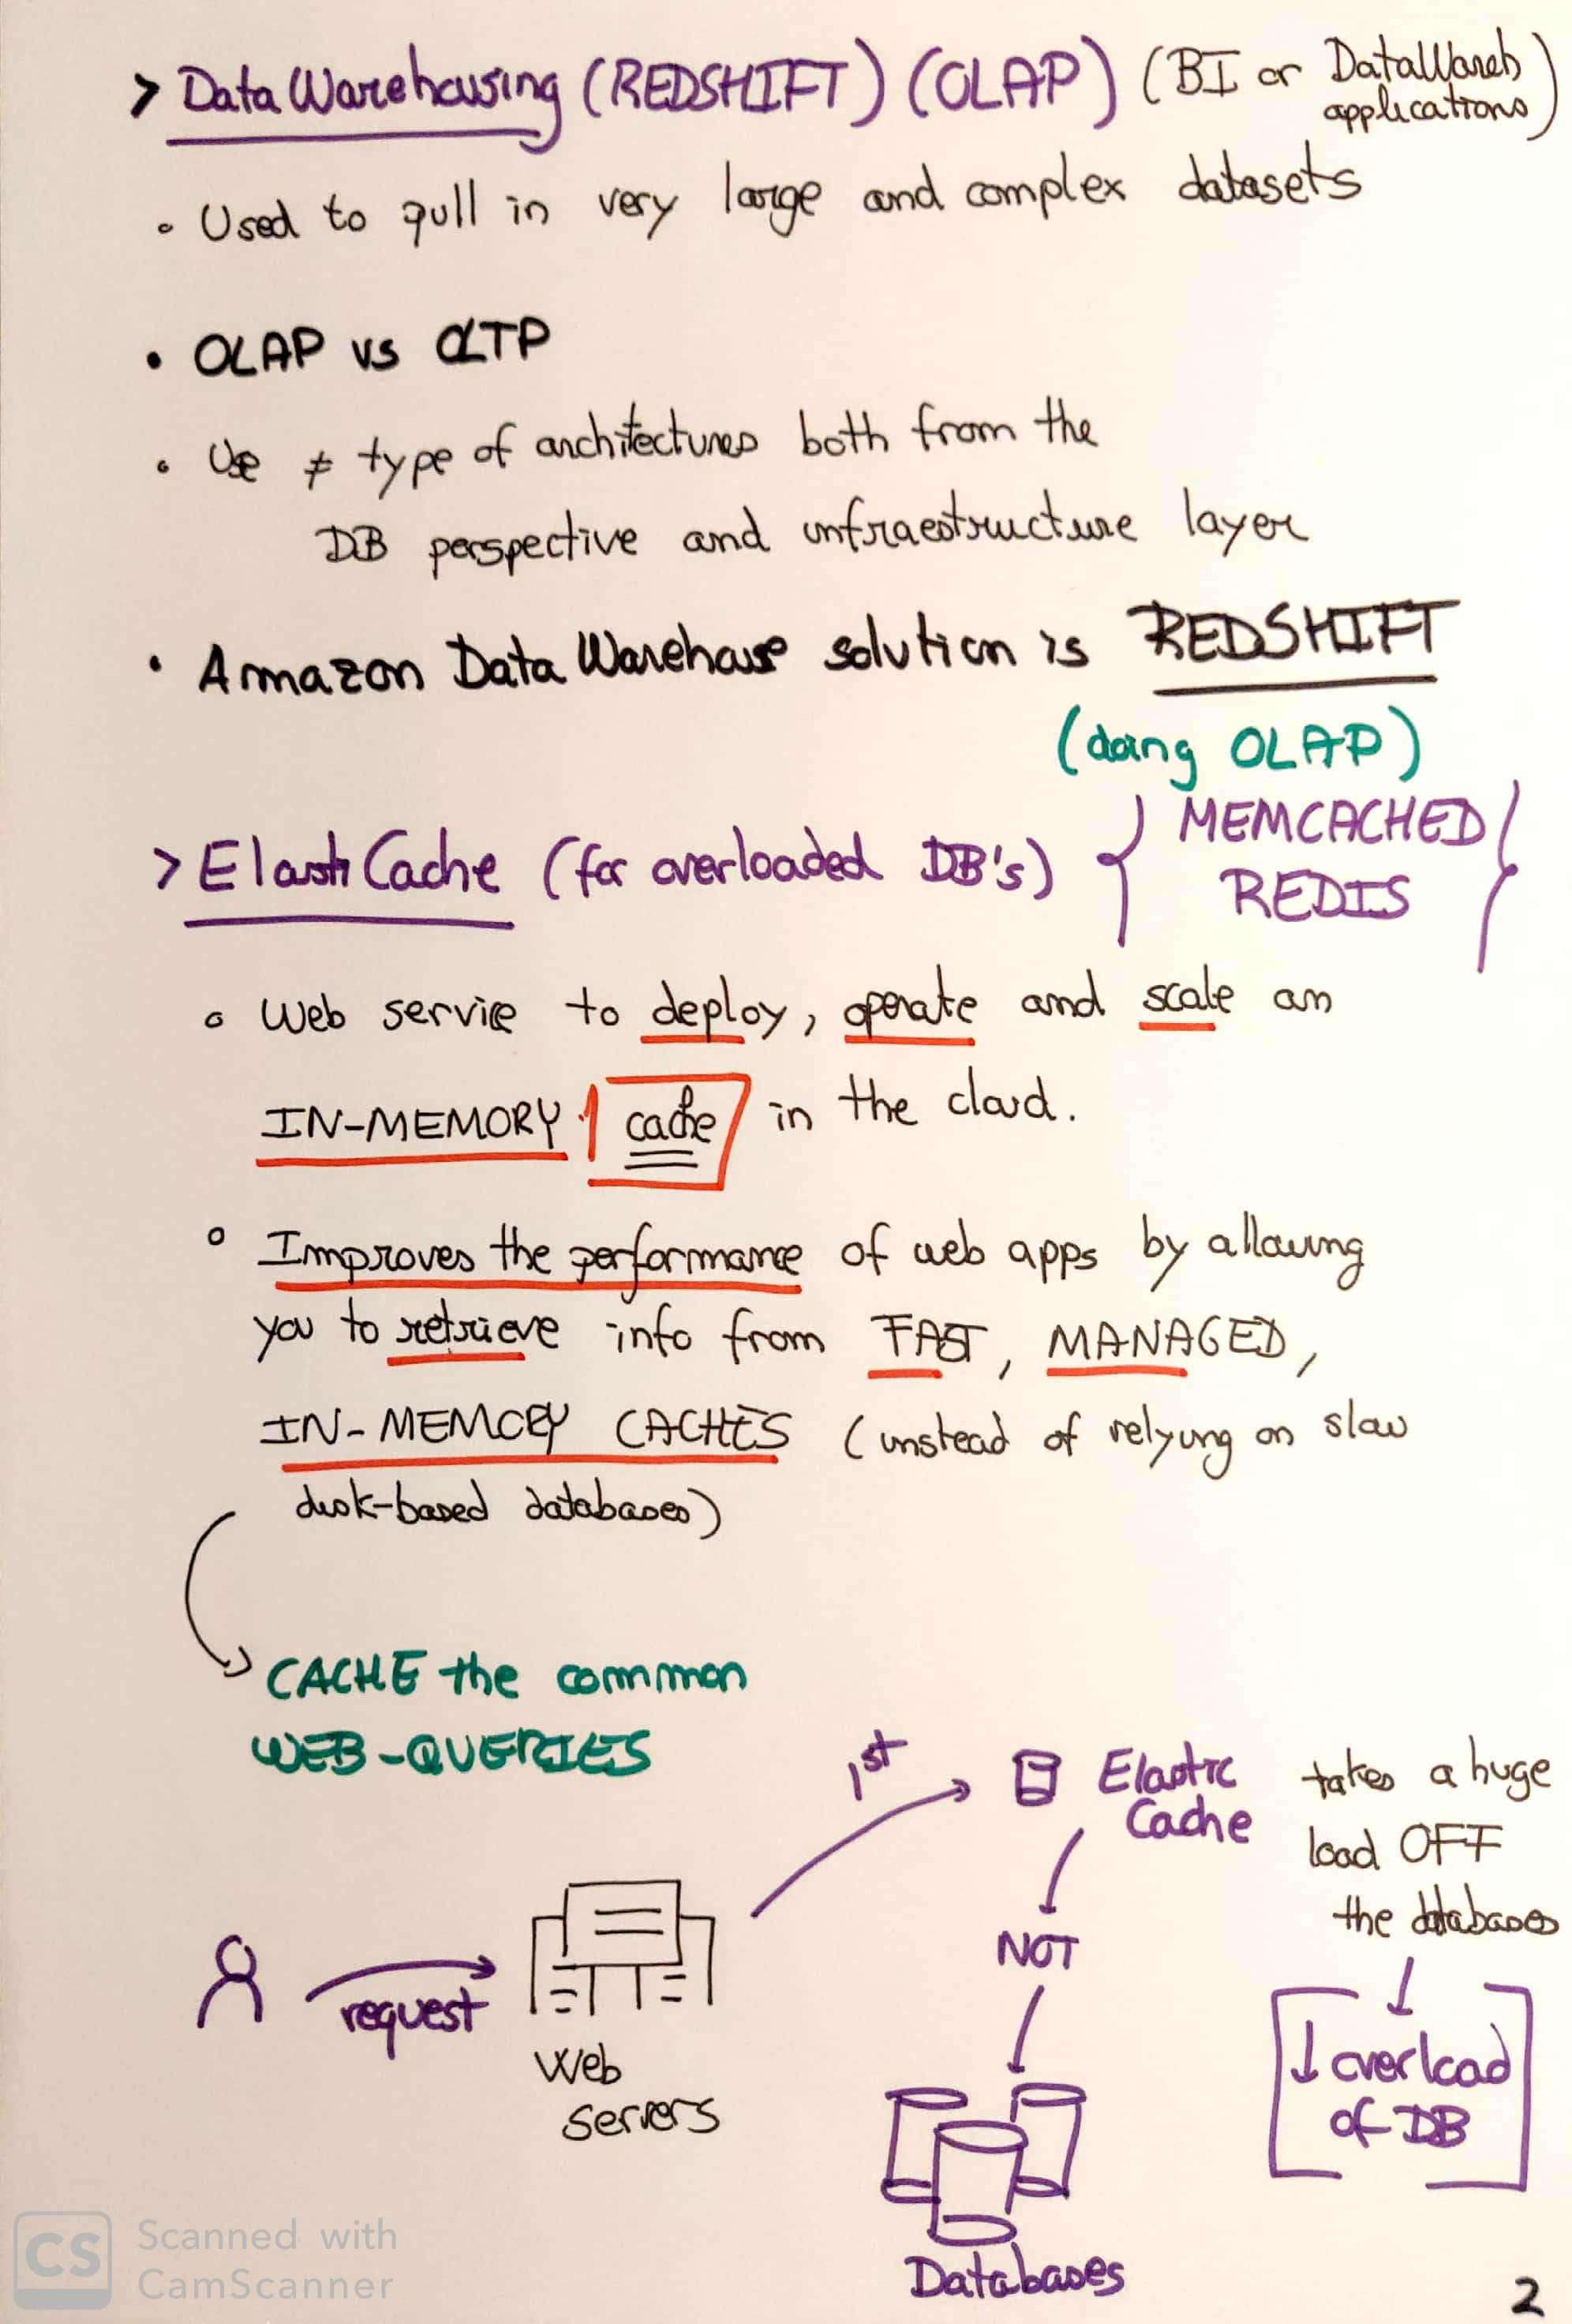 > Data Warehousing (REDSHIFT) (OLAP) (BI or DataWareh applications)
◦ Used to pull in very large and complex datasets
• OLAP vs OLTP
◦ Use ≠ type of architectures both from the
DB perspective and infraestructure layer
• Amazon Data Warehouse solution is REDSHIFT
(doing OLAP)
> ElastiCache (for overloaded DB's) { MEMCACHED
REDIS }
◦ Web service to deploy, operate and scale an
IN-MEMORY cache in the cloud.
◦ Improves the performance of web apps by allowing
you to retrieve info from FAST, MANAGED,
IN-MEMORY CACHES (instead of relying on slow
disk-based databases)
CACHE the common
WEB-QUERIES
1st
Elastic
Cache
takes a huge
load OFF
the databases
NOT
request
Web
Servers
↓ overload
of DB
Databases
CS Scanned with
CamScanner
2